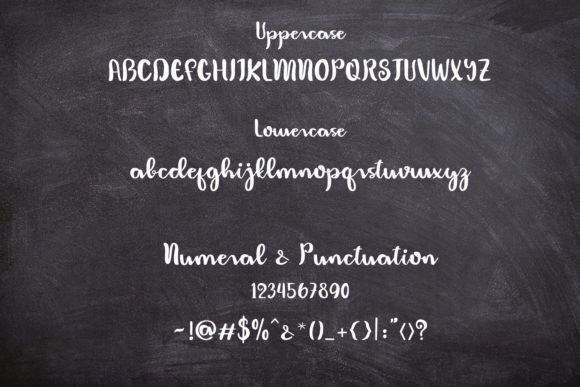 Uppercase
ABCDEFGHIJKLMNOPQRSTUVWXYZ
Lowercase
abcdefghijklmnopqrstuvwxyz
Numeral & Punctuation
1234567890
~!@#$%^&*()_+{}|:"<>?